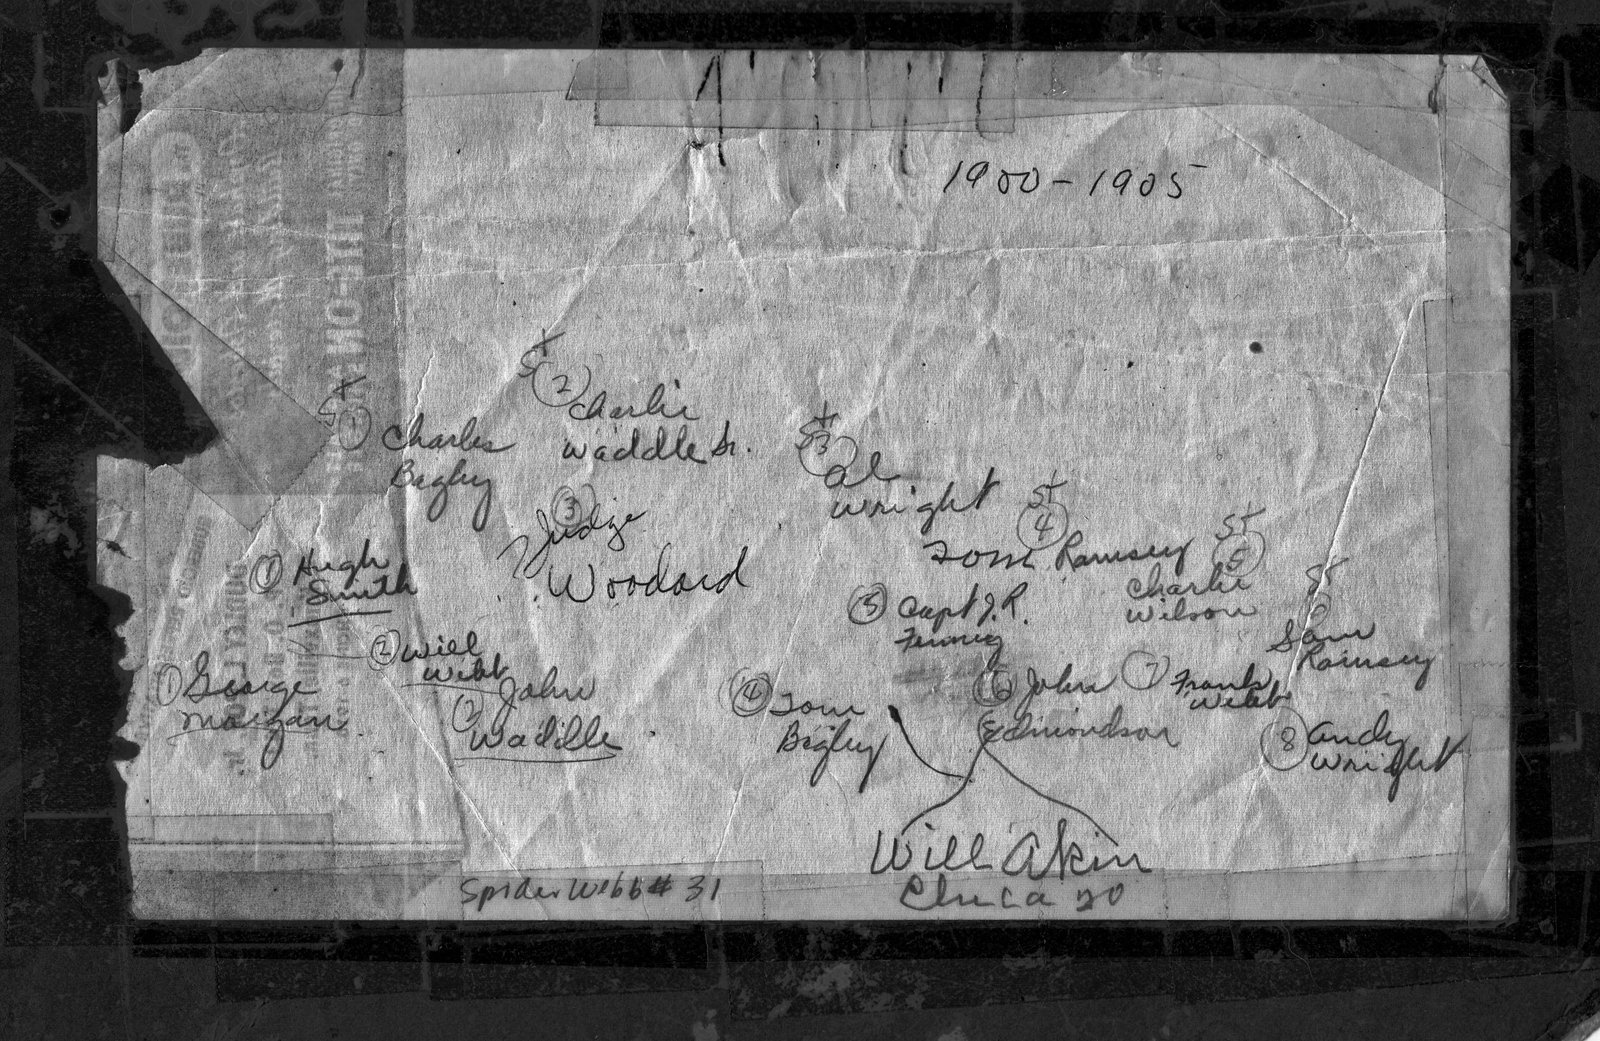 1900-1905
St
1
Charles
Bagley
St
2
Charlie
Waddle Sr.
St
3
Al
Wright
St
4
Tom Ramsey
St
5
Charlie
Wilson
St
6
Sam
Ramsey
1 Hugh
Smith
2 Will
Webb
3
? Judge
Woodard
5 Capt J. R.
1 George
Morgan
2 John
Waddle
4 Tom
Bagley
6 John
Edmondson
7 Frank
Webb
8 Andy
Wright
Will Akin
Chicago
Spider Webb # 31